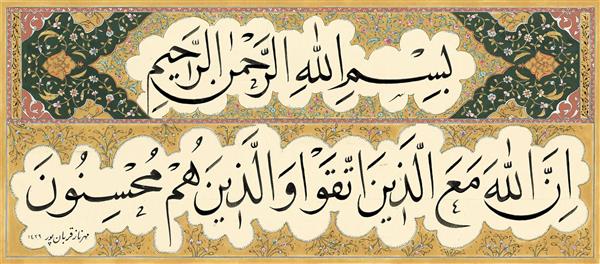 بِسْمِ اللهِ الرَّحْمٰنِ الرَّحِيمِ
اِنَّ اللهَ مَعَ الَّذِينَ اتَّقَوْا وَالَّذِينَ هُمْ مُحْسِنُونَ
مهرناز قربان پور ١٤٢٩